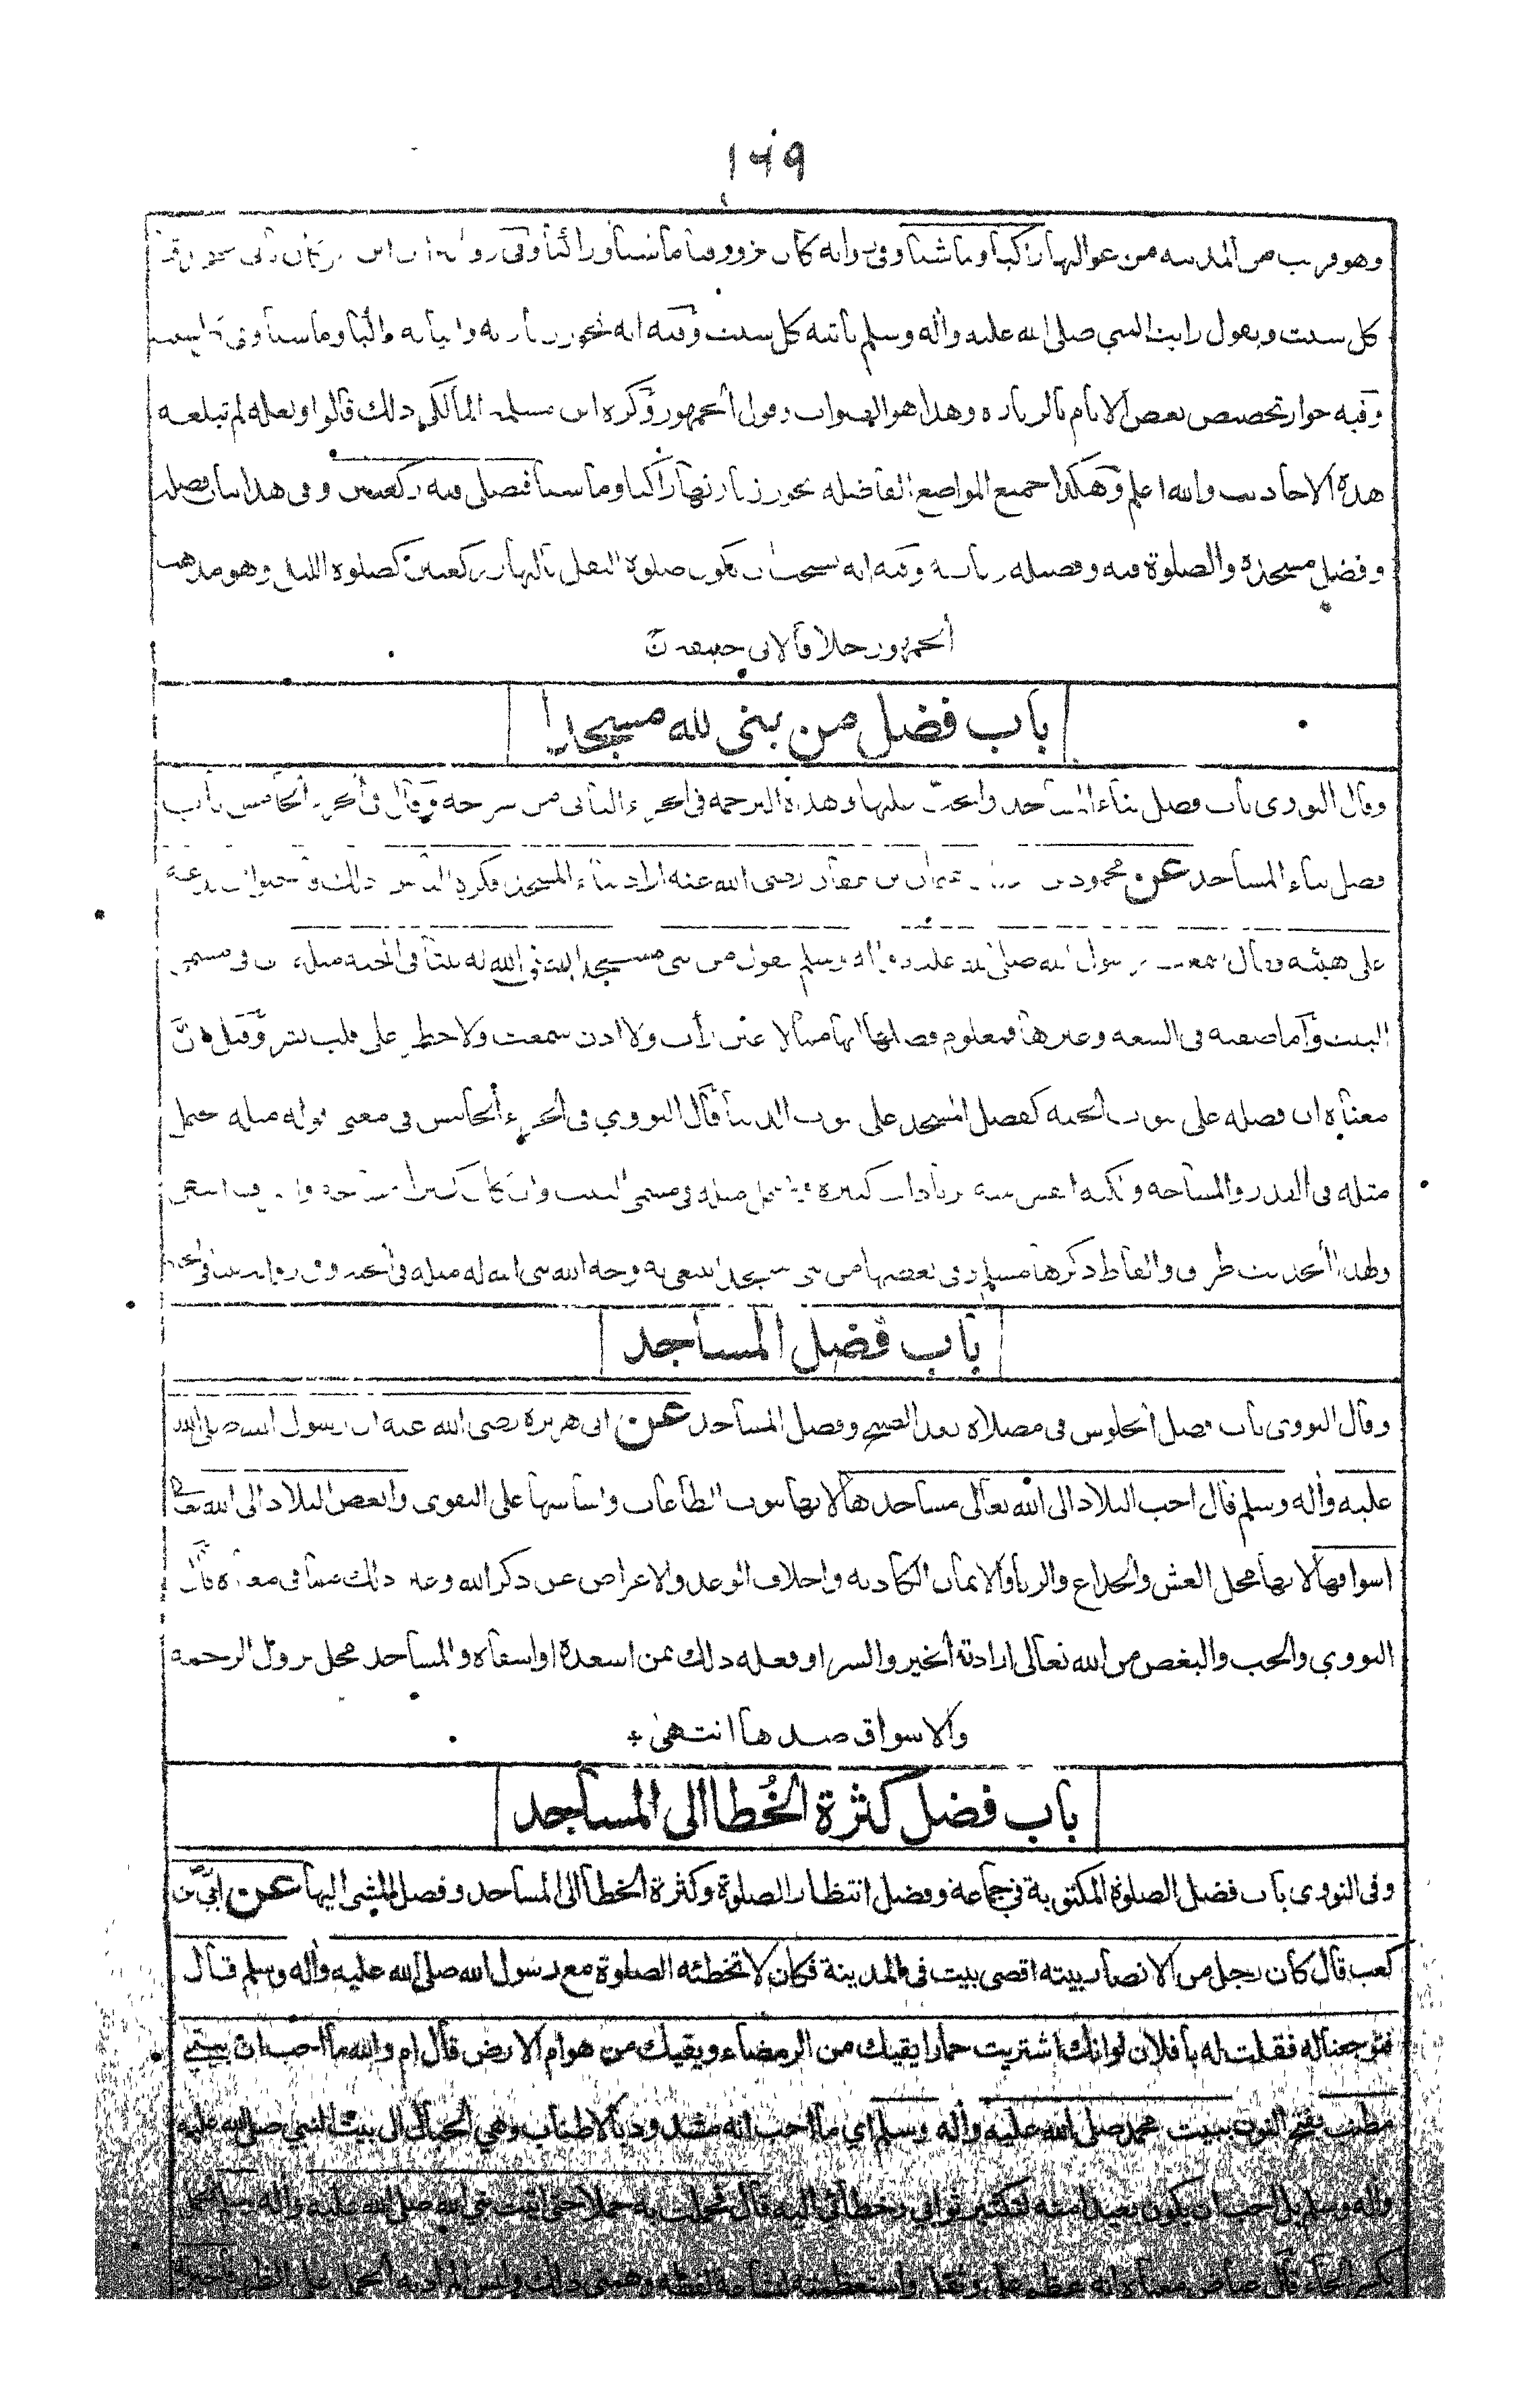 ١٦٩
وهو قريب من المدينة من عواليها راكبا وماشيا وفي رواية كان يزور قبا ماشيا وراكبا وفي رواية ان ابن
كل سبت ويقول رايت النبي صلى الله عليه واله وسلم ياتيه كل سبت وفيه انه يجوز زيارته واتيانه راكبا وماشيا وفي
وفيه جواز تخصيص بعض الايام بالزيارة وهذا هو الصواب وقول الجمهور وكره ابن مسلمة المالكي ذلك قالوا ولعله لم تبلغه
هذه الاحاديث والله اعلم وهكذا جميع المواضع الفاضلة تجوز زيارتها راكبا وماشيا فيصلى فيه ركعتين وفي هذا بيان فضله
وفضل مسجده والصلوة فيه وفضيلة زيارته وفيه انه يستحب ان يكون صلوة النفل بالنهار ركعتين كصلوة الليل وهو مذهب
الجمهور خلافا لابي حنيفة
باب فضل من بنى لله مسجدا
وقال النووي باب فضل بناء المساجد والحث عليها وهذه الترجمة في الجزء الثاني من شرحه وقال في الجزء الخامس باب
فضل بناء المساجد عن محمود بن عثمان بن عفان رضى الله عنه اراد بناء المسجد فكره الناس ذلك
على هيئته فقال سمعت رسول الله صلى الله عليه واله وسلم يقول من بنى مسجدا لله بنى الله له بيتا في الجنة مثله في مسمى
البيت واما صفته في السعة وغيرها فمعلوم فضلها انها مما لا عين رأت ولا اذن سمعت ولا خطر على قلب بشر وقيل ان
معناه ان فضله على بيوت الجنة كفضل المسجد على بيوت الدنيا قال النووي في الجزء الخامس في معنى قوله مثله يحتمل
مثله في القدر والمساحة ولكنه انفس منه بزيادات كثيرة ويحتمل مثله في مسمى البيت وان كان اكبر مساحة
ولهذا الحديث طرق والفاظ ذكرها مسلم وفي بعضها من بنى مسجدا يبتغى به وجه الله بنى الله له مثله في الجنة وفي رواية بيتا في الجنة
باب فضل المساجد
وقال النووي باب فضل الجلوس في مصلاه بعد الصبح وفضل المساجد عن ابي هريرة رضى الله عنه ان رسول الله صلى الله
عليه واله وسلم قال احب البلاد الى الله تعالى مساجدها لانها بيوت الطاعات واساسها على التقوى وابغض البلاد الى الله تعالى
اسواقها لانها محل الغش والخداع والربا والايمان الكاذبة واخلاف الوعد والاعراض عن ذكر الله وغير ذلك مما في معناه قال
النووي والحب والبغض من الله تعالى ارادته الخير والشر او فعله ذلك بمن اسعده او اشقاه والمساجد محل نزول الرحمة
والاسواق ضدها انتهى
باب فضل كثرة الخُطا الى المساجد
وفى النووى باب فضل الصلوة المكتوبة في جماعة وفضل انتظار الصلوة وكثرة الخطا الى المساجد وفضل المشى اليها عن ابي بن
كعب قال كان رجل من الانصار بيته اقصى بيت في المدينة فكان لا تخطئه الصلوة مع رسول الله صلى الله عليه واله وسلم قال
فتوجعنا له فقلت له يا فلان لو انك اشتريت حمارا يقيك من الرمضاء ويقيك من هوام الارض قال ام والله ما احب ان بيتي
مطنب بفتح النون ببيت محمد صلى الله عليه واله وسلم اي ما احب انه مشدود بالاطناب وهي الحبال الى بيت النبي صلى الله عليه
واله وسلم بل احب ان يكون بعيدا منه لتكثير ثوابي وخطائي اليه قال فحملت به حملا حتى اتيت نبي الله صلى الله عليه واله وسلم
بكسر الحاء قال عياض معناه انه عظم علي وثقل واستعظمته لبشاعة لفظه وهمني ذلك وليس المراد به الحمل على الظهر